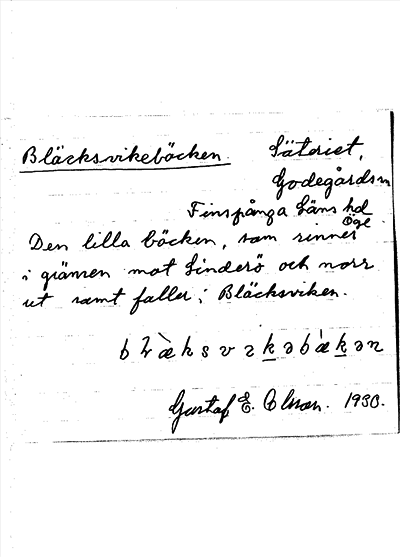 Bläcksvikebäcken. Säteriet,
Godegårds sn
Finspånga läns hd
Ögl.
Den lilla bäcken, som rinner
i gränsen mot Linderö och norr
ut samt faller i Bläcksviken.
Gustaf E. Olsson. 1930.